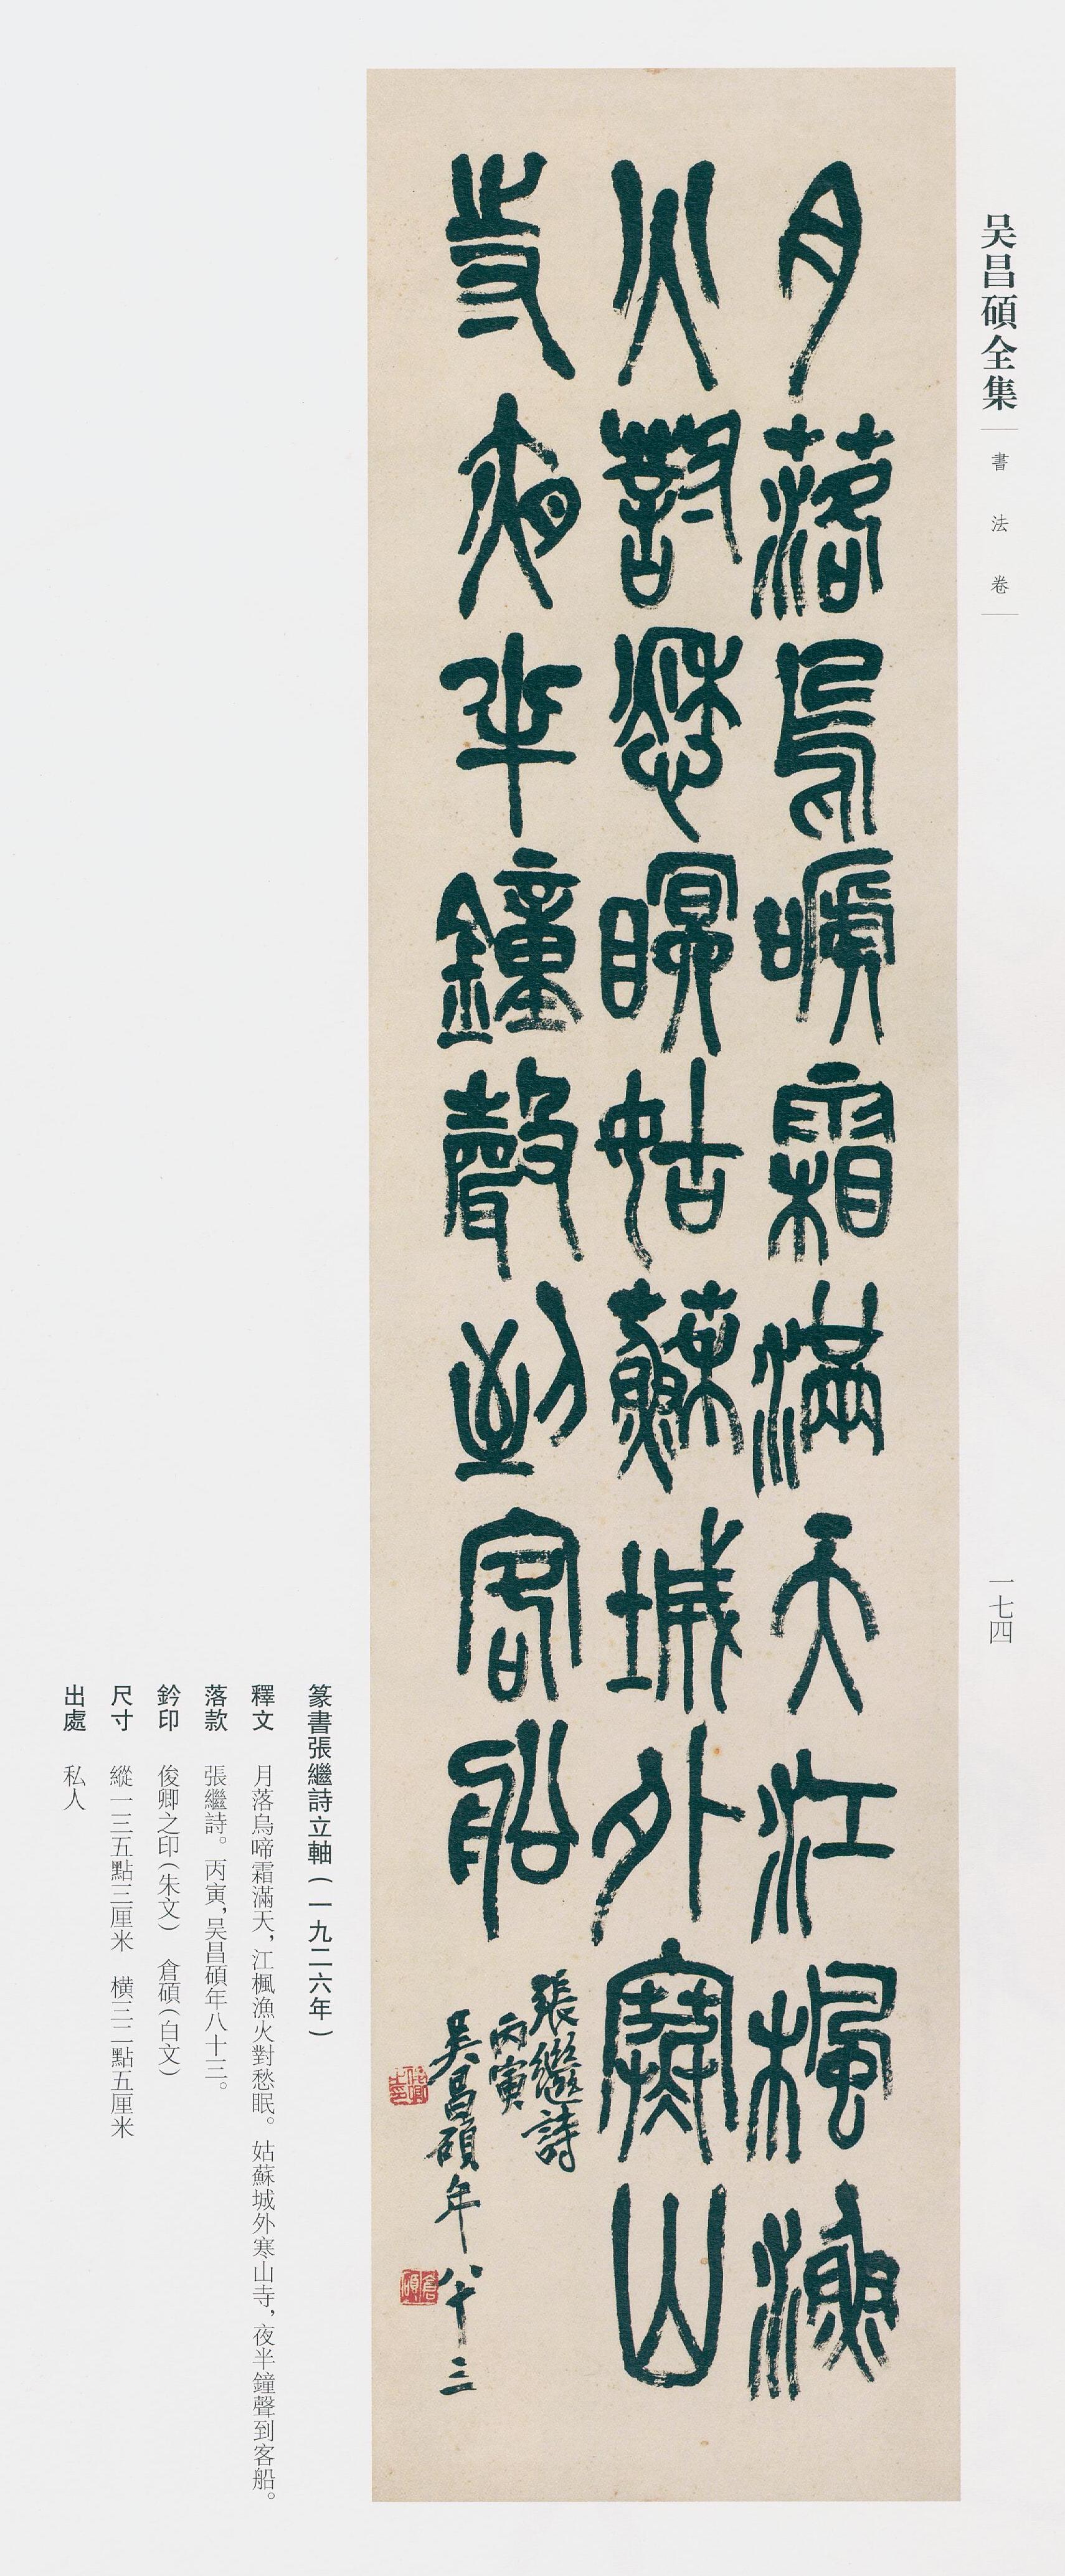 吴昌碩全集
書法卷
一七四
月落烏嗁霜滿天江楓漁
火對愁眠姑蘇城外寒山
寺夜半鐘聲到客船
張繼詩
丙寅
吴昌碩年八十三
俊卿之印
倉碩
篆書張繼詩立軸(一九二六年)
釋文　月落烏啼霜滿天,江楓漁火對愁眠。姑蘇城外寒山寺,夜半鐘聲到客船。
落款　張繼詩。丙寅,吴昌碩年八十三。
鈐印　俊卿之印(朱文)　倉碩(白文)
尺寸　縱一三五點三厘米　橫三二點五厘米
出處　私人